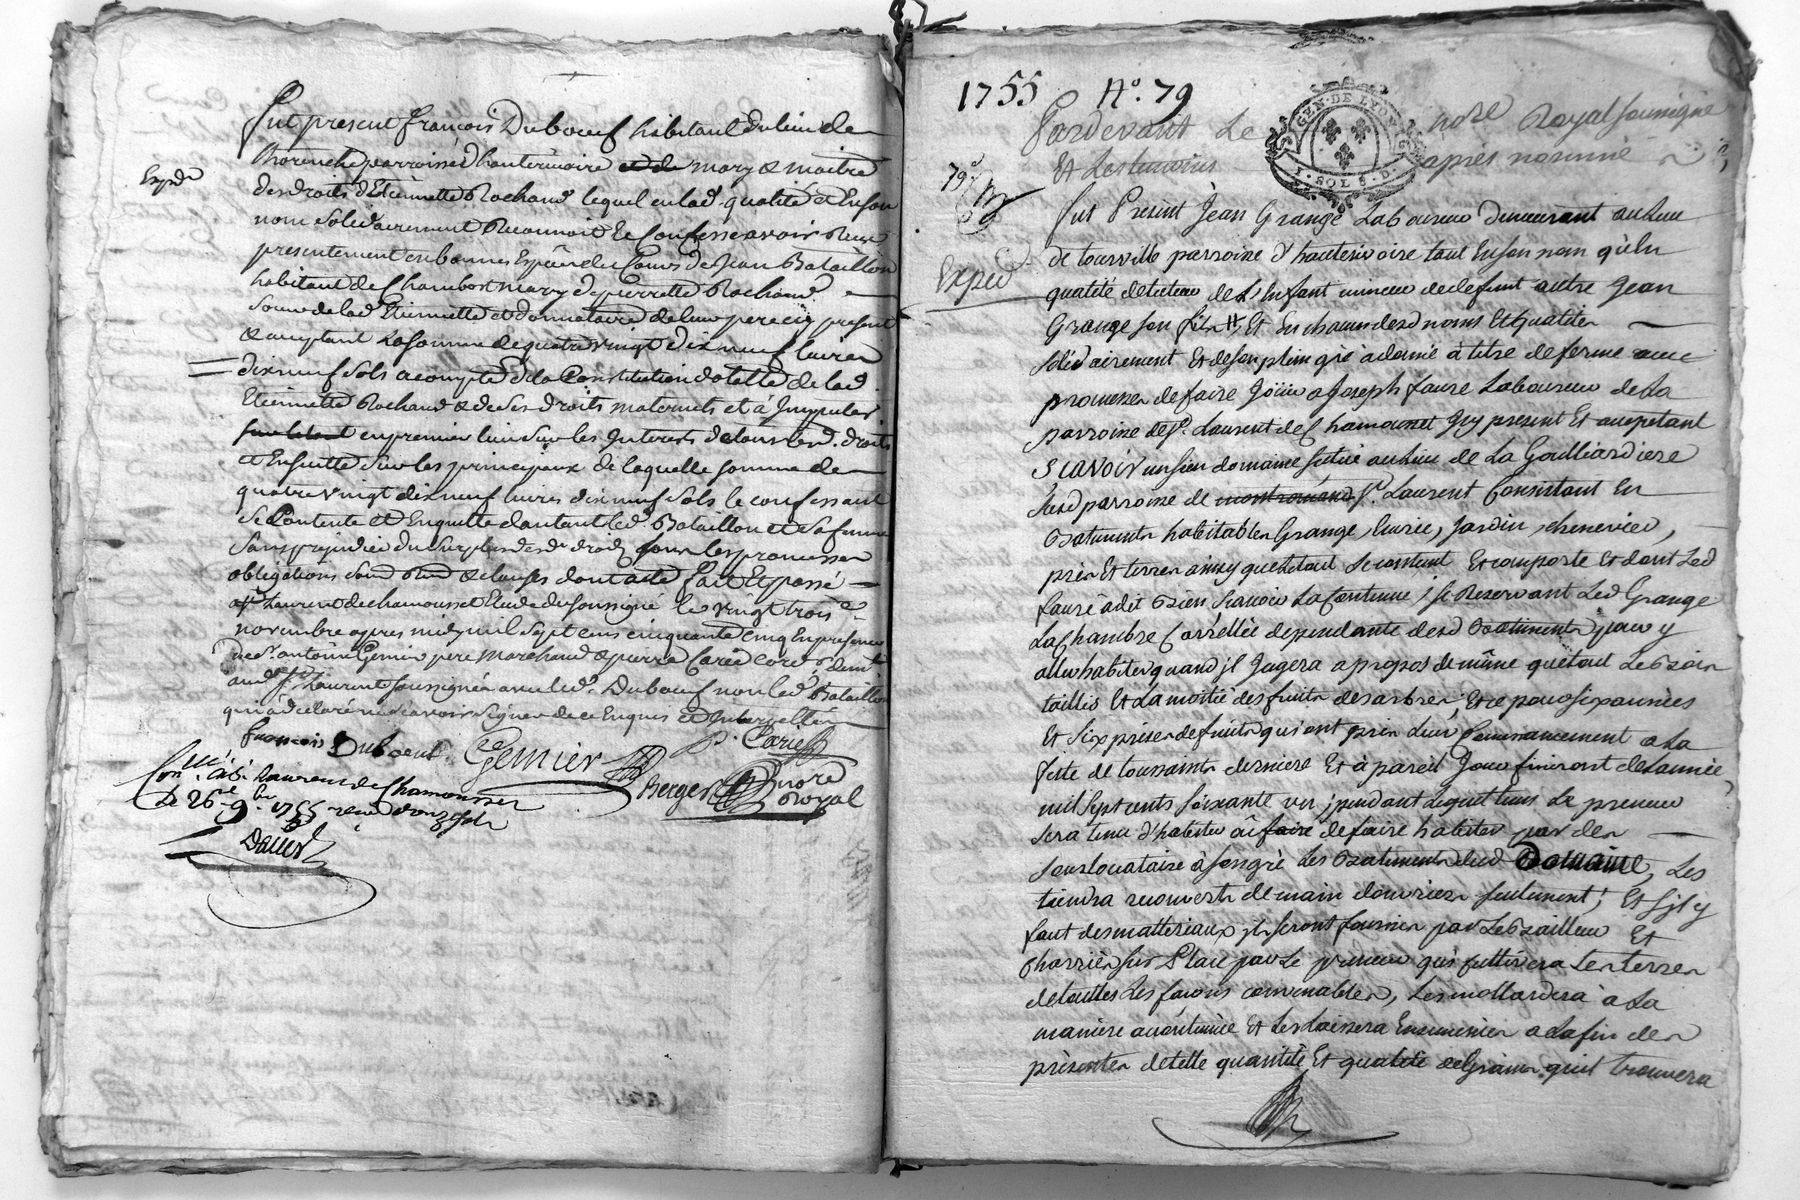 Fut present françois Duboeuf habitant du lieu de
parroisse d'hauterivoire et de mary & maitre
Expedié
des droits d'Etiennette Rochand lequel en lad. qualité et en son
nom solidairement Reconnoit et Confesse avoir Reçu
presentement en bonnes Espèces du Cours de Jean Bataillon
habitant de Chambost mary de pierrette Rochand
soeur de lad. Etiennette et donnataire de leur pere icy present
& acceptant la somme de quatre vingt dix neuf livres
dix neuf sols a compte de la Constitution dotalle de lad.
Etiennette Rochand & de ses droits maternels et à Imputer
en premier lieu sur les Interets de tous lesd. droits
et Ensuitte sur les principaux de laquelle somme de
quatre vingt dix neuf livres dix neuf sols le confessant
se Contente et En quitte d'autant led. Bataillon et sa femme
sans prejudice du Surplus desd. droits sous les promesses
obligations soum. Ren. & clauses dont acte fait Et passé
a St. Laurent de chamousset Etude du soussigné le vingt trois e
novembre apres midy mil sept cens cinquante cinq En presence
de sr. antoine Gemier pere Marchand & pierre Carié cord. demts
aud. St. Laurent soussignés avec led. Duboeuf non led. Bataillon
qui a declaré ne sçavoir signer de ce Enquis et Interpellé
françois Duboeuf Gemier P. Carié
Berger nore
Royal
Conllé. à St. Laurens de Chamousset
le 26e 9bre 1755 reçu
1755 N°. 79
Pardevant Le nore Royal soussigné
Et Les temoins après nommé
GEN. DE LYON
1. SOL 8. D.
79
Fut Present Jean Grange Laboureur demeurant au lieu
de tourville parroisse d'hauterivoire tant En son nom qu'En
Exped
qualité de tuteur de L'Enfant mineur de deffunt autre Jean
Grange son fils Et En chacun desd noms Et qualités
solidairement Et de son plein gré à donné à titre de ferme avec
promesse de faire Joüir a Joseph faure Laboureur de La
parroisse de St. Laurent de Chamousset Icy present Et acceptant
Scavoir un sien domaine situé au Lieu de La Gailliardiere
susd parroisse de montromand St. Laurent Consistant En
Batiments habitables Grange, Ecurie, Jardin, cheneviere,
prés Et terres ainsy que Le tout se contient Et comporte Et dont Led
faure à dit bien scavoir La Contenue, se Reservant Led Grange
La Chambre Carrellée dependante desd Batiments pour y
aller habiter quand il Jugera a propos de même que tout Le bois
taillis Et La moitié des fruits des arbres, Et ce pour six années
Et six prises de fruits qui ont pris Leur Commancement a La
feste de toussaints derniere Et à pareil Jour finiront de L'année
mil sept cents soixante un, pendant Lequel tems Le preneur
sera tenu d'habiter ou faire de faire habiter par des
souslocataire à son gré Les Batiments dud Domaine, Les
tiendra recouverts de main d'ouvriers seulement; Et s'il y
faut des matteriaux ils seront fournis par Le Bailleur Et
Charriés sur Place par Le preneur qui cultivera Les terres
de touttes Les façons convenables, Les mottardera à La
maniere accoutumée Et Les Laissera Ensemensées a La fin des
presentes de telle quantité Et qualité de Grains qu'il trouvera